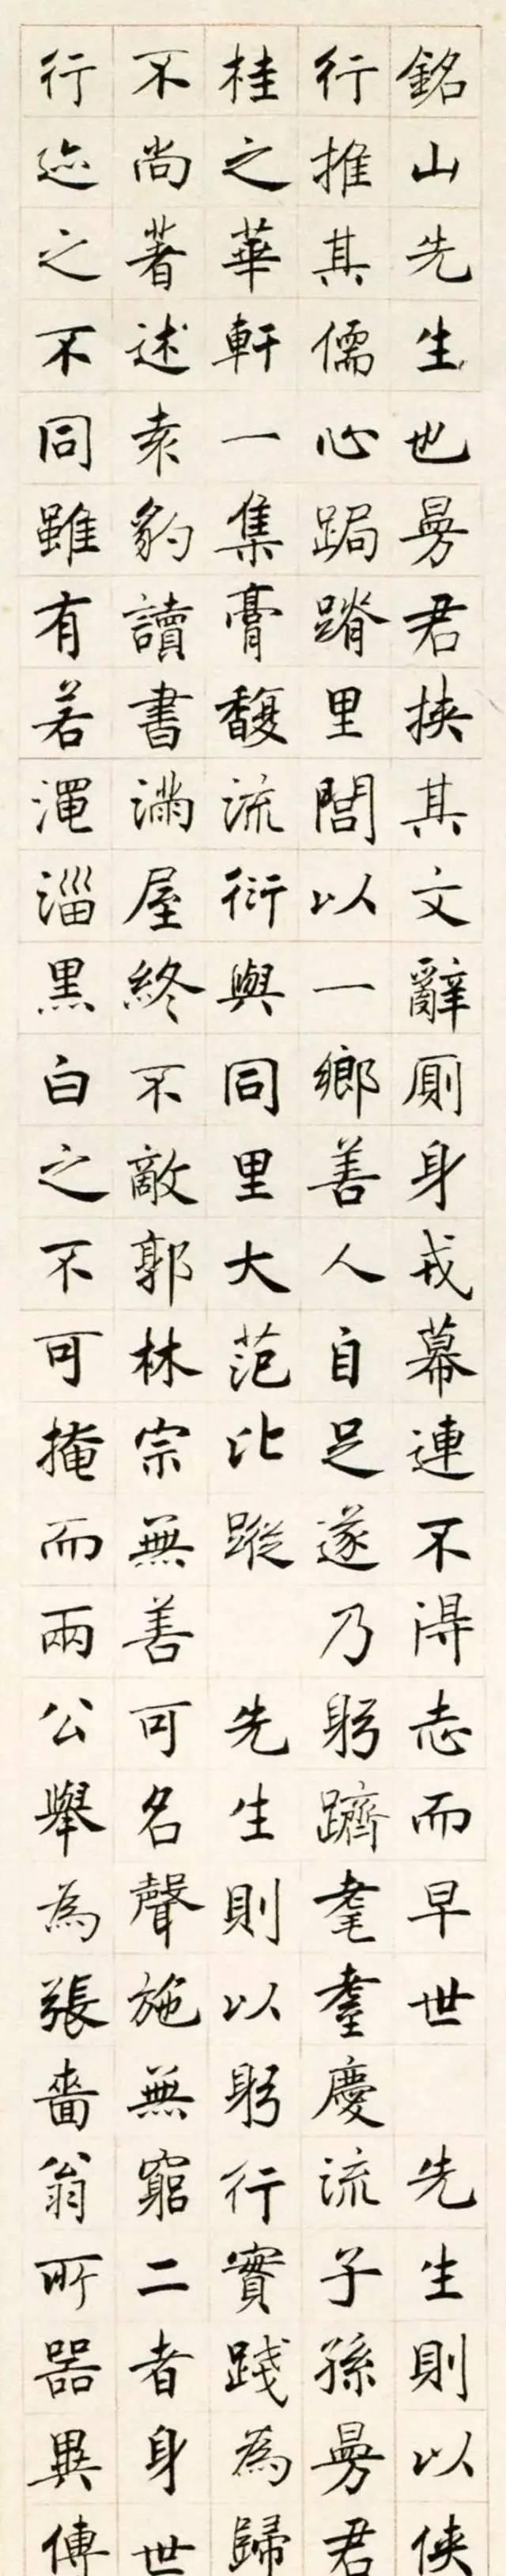 銘山先生也曼君挾其文辭厠身戎幕連不得志而早世先生則以俠
行推其儒心跼蹐里閭以一鄉善人自足遂乃躬躋耄耋慶流子孫曼君
桂之華軒一集膏馥流衍與同里大范比蹤先生則以躬行實踐為歸
不尚著述袁豹讀書滿屋終不敵郭林宗無善可名聲施無窮二者身世
行迹之不同雖有若澠淄黑白之不可掩而兩公舉為張嗇翁所器異傳